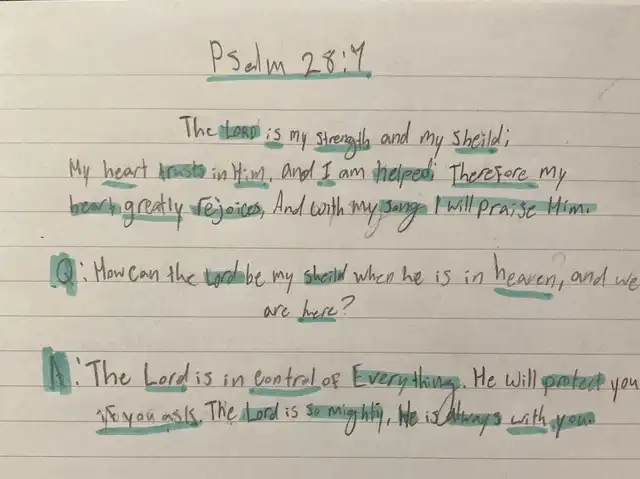 Psalm 28:7
The LORD is my strength and my sheild;
My heart trusts in Him, and I am helped; Therefore my
heart greatly rejoices, And with my song I will praise Him.
Q: How can the Lord be my sheild when he is in heaven, and we
are here?
A: The Lord is in control of Everything. He will protect you
if you asks. The Lord is so mighty, He is Always with you.